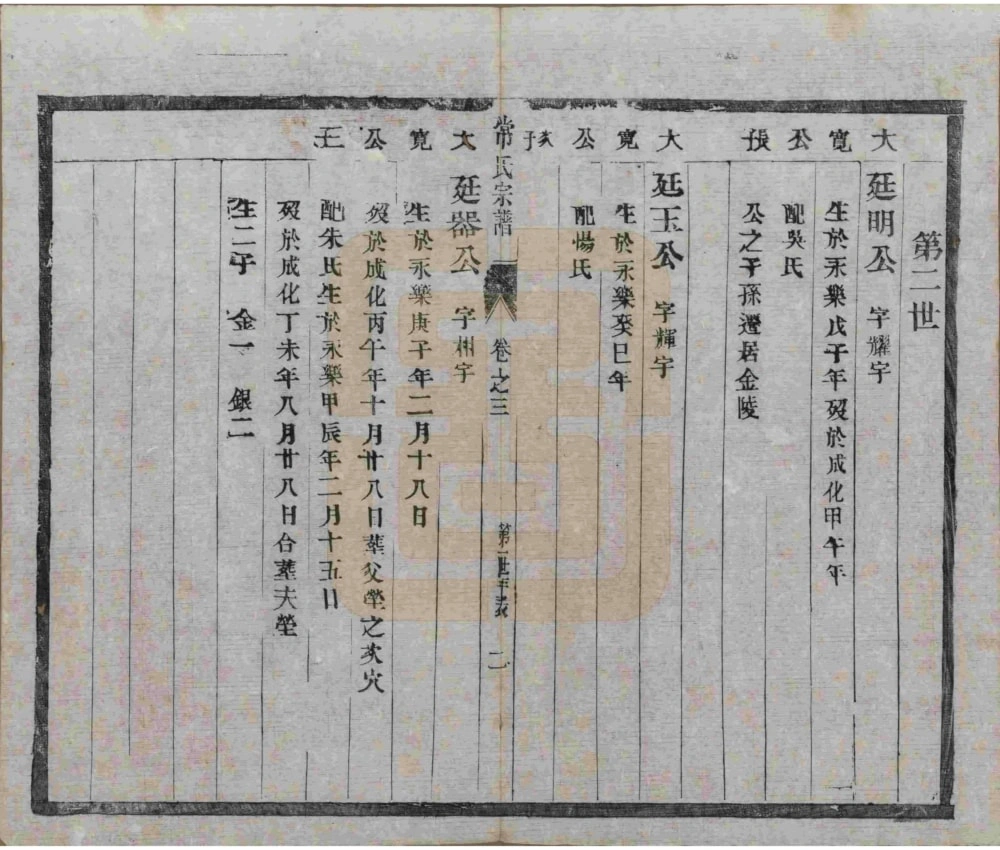 第二世
大寬公長
廷明公　字耀宇
生於永樂戊子年歿於成化甲午年
配吳氏
公之子孫遷居金陵
大寬公次子
廷玉公　字輝宇
生於永樂癸巳年
配惕氏
常氏宗譜　卷之三　第二世年表　二
大寬公三
廷器公　字相宇
生於永樂庚子年二月十八日
歿於成化丙午年十月廿八日葬父塋之亥穴
配朱氏生於永樂甲辰年二月十五日
歿於成化丁未年八月廿八日合葬夫塋
生二子　金一　銀二